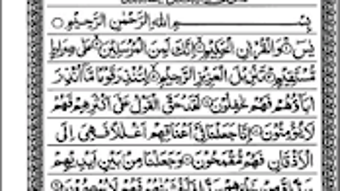 بِسْمِ اللهِ الرَّحْمٰنِ الرَّحِيْمِ
يٰسٓ وَالْقُرْاٰنِ الْحَكِيْمِ اِنَّكَ لَمِنَ الْمُرْسَلِيْنَ عَلٰى صِرَاطٍ
مُّسْتَقِيْمٍ تَنْزِيْلَ الْعَزِيْزِ الرَّحِيْمِ لِتُنْذِرَ قَوْمًا مَّاۤ اُنْذِرَ
اٰبَآؤُهُمْ فَهُمْ غٰفِلُوْنَ لَقَدْ حَقَّ الْقَوْلُ عَلٰۤى اَكْثَرِهِمْ فَهُمْ
لَا يُؤْمِنُوْنَ اِنَّا جَعَلْنَا فِيْۤ اَعْنَاقِهِمْ اَغْلٰلًا فَهِىَ اِلَى
الْاَذْقَانِ فَهُمْ مُّقْمَحُوْنَ وَجَعَلْنَا مِنْۢ بَيْنِ اَيْدِيْهِمْ